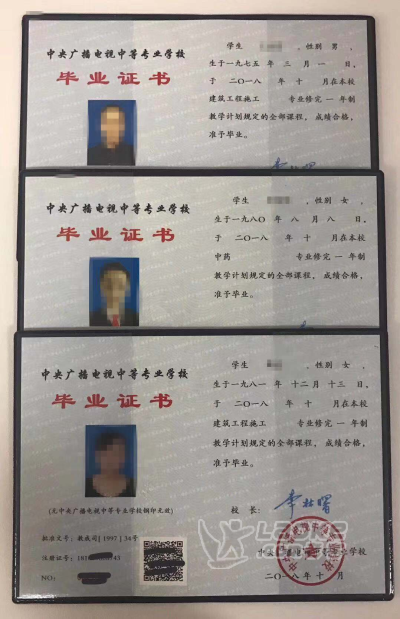 中央广播电视中等专业学校
毕业证书
学生 ,性别 男,
生于一九七五年 三 月 一 日,
于 二〇一八 年 十 月在本校
建筑工程施工 专业修完 一 年制
教学计划规定的全部课程,成绩合格,
准予毕业。
中央广播电视中等专业学校
毕业证书
学生 ,性别 女,
生于一九八〇年 八 月 八 日,
于 二〇一八 年 十 月在本校
中药 专业修完 一 年制
教学计划规定的全部课程,成绩合格,
准予毕业。
中央广播电视中等专业学校
毕业证书
(无中央广播电视中等专业学校钢印无效)
批准文号:教成司[1997]34号
注册证号:
NO:
学生 ,性别 女,
生于一九八一年 十二月 十三 日,
于 二〇一八 年 十 月在本校
建筑工程施工 专业修完 一 年制
教学计划规定的全部课程,成绩合格,
准予毕业。
校 长:
中央广播电视中等专业学校
二〇一八年 十 月